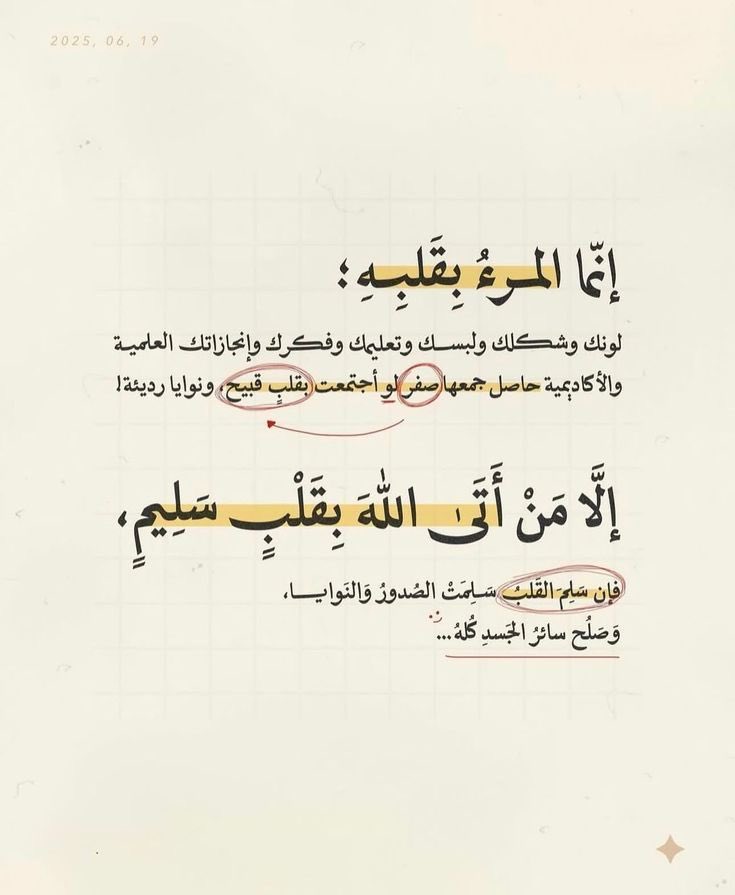 2025, 06, 19
إنّما المرءُ بِقَلبِهِ ؛
لونك وشكلك ولبسك وتعليمك وفكرك وإنجازاتك العلمية
والأكاديمية حاصل جمعها صفر لو أجتمعت بقلبٍ قبيح، ونوايا رديئة!
إلَّا مَنْ أَتَى اللهَ بِقَلْبٍ سَلِيمٍ،
فإن سَلِمَ القَلبُ سَلِمَتْ الصُدورُ وَالنَوايا،
وَصَلُح سائرُ الجَسدِ كُلهُ...